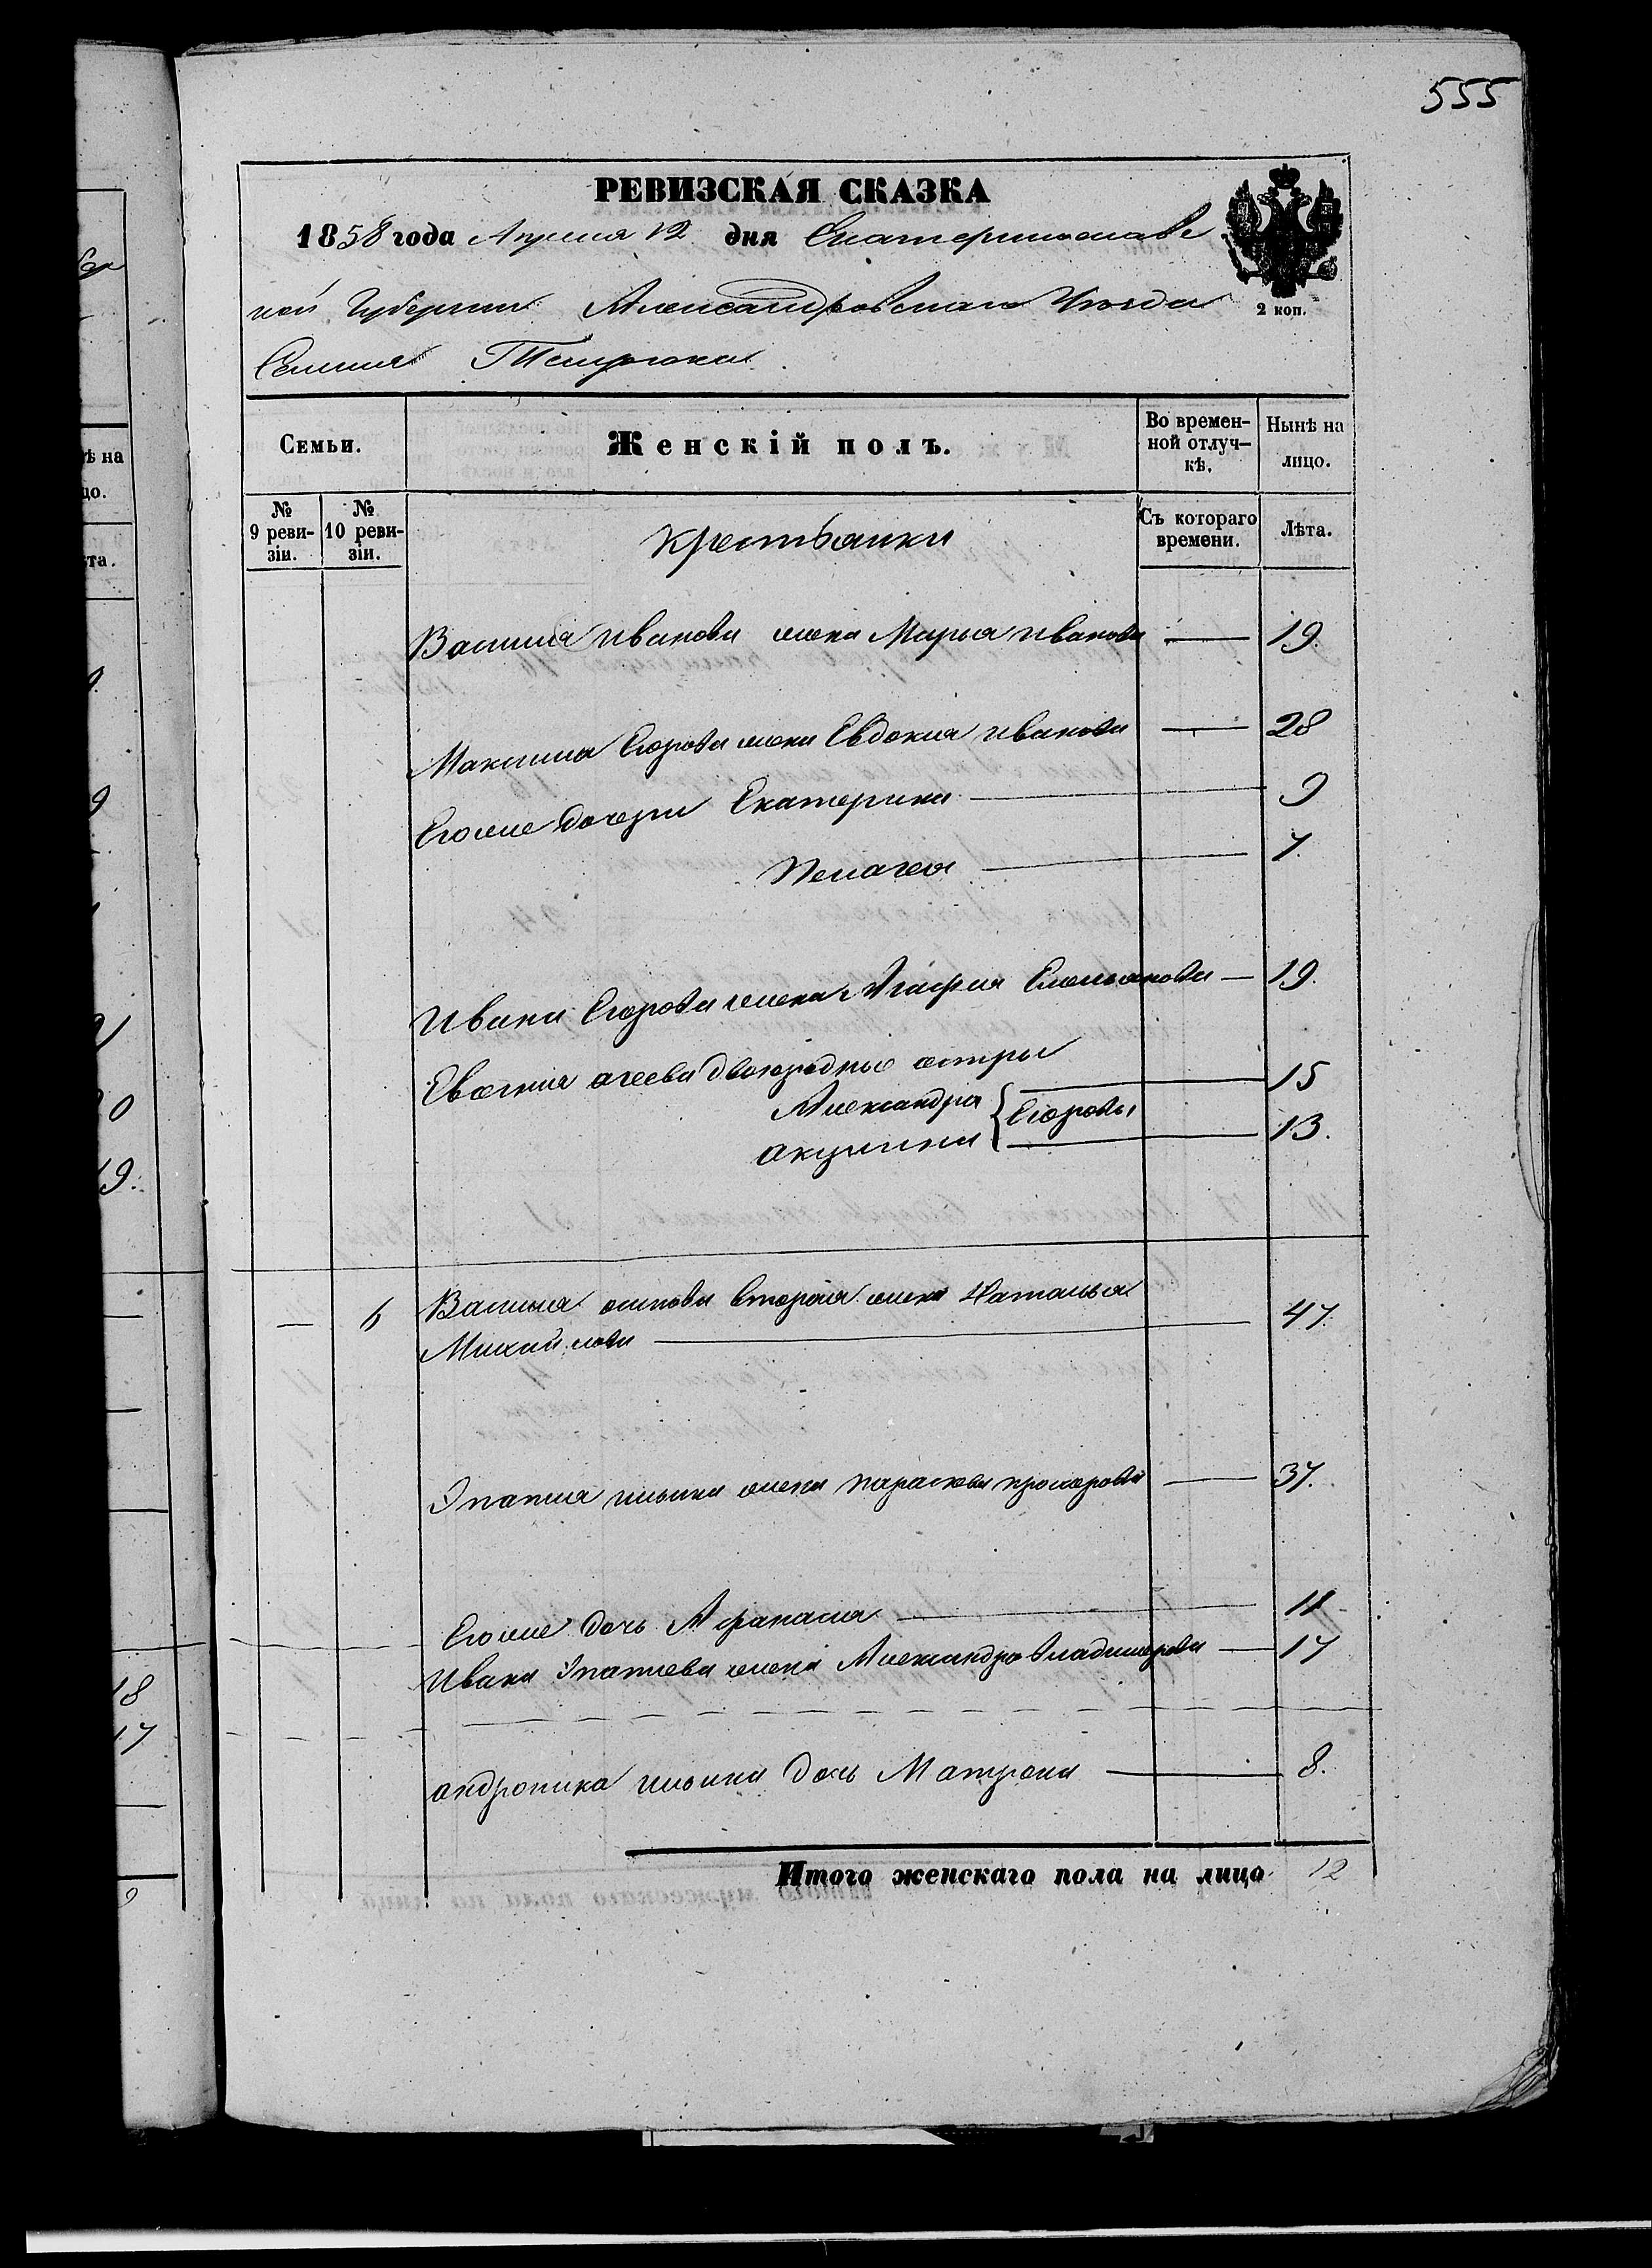 555
РЕВИЗСКАЯ СКАЗКА
1858 года Апреля 12 дня Екатеринославс
кой Губернии Александровскаго Уезда
Селения Темрюка
2 коп.
Семьи.
Женскій полъ.
Во времен-
ной отлуч-
кѣ.
Нынѣ на
лицо.
№
9 реви-
зіи.
№
10 реви-
зіи.
Крестьянки
Съ котораго
времени.
Лѣта.
Василия Иванова жена Марья Иванова — 19.
Максима Егорова жена Евдокия Иванова — 28
Егоже дочери Екатерина — 9
Пелагея — 7.
Ивана Егорова жена Агафия Емельянова — 19.
агеева двоюродные сестры
Александра — 15
Егоровы
Акулина — 13.
— 6 Василия осипова вторая жена Наталья 47.
Михайлова —
Ипатия ильина жена параскева прохорова — 37.
Егоже дочь Афанасия — 11
Ивана Ипатиева жена Александра Владимерова — 17
андроника ильина дочь Матрона — 8.
Итого женскаго пола на лицо 12